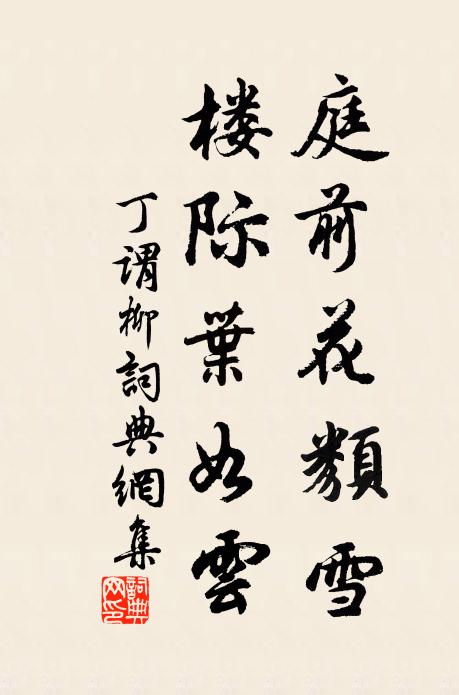 庭前花類雪
楼际葉如雲
丁謂柳詞典網集
詞典网印